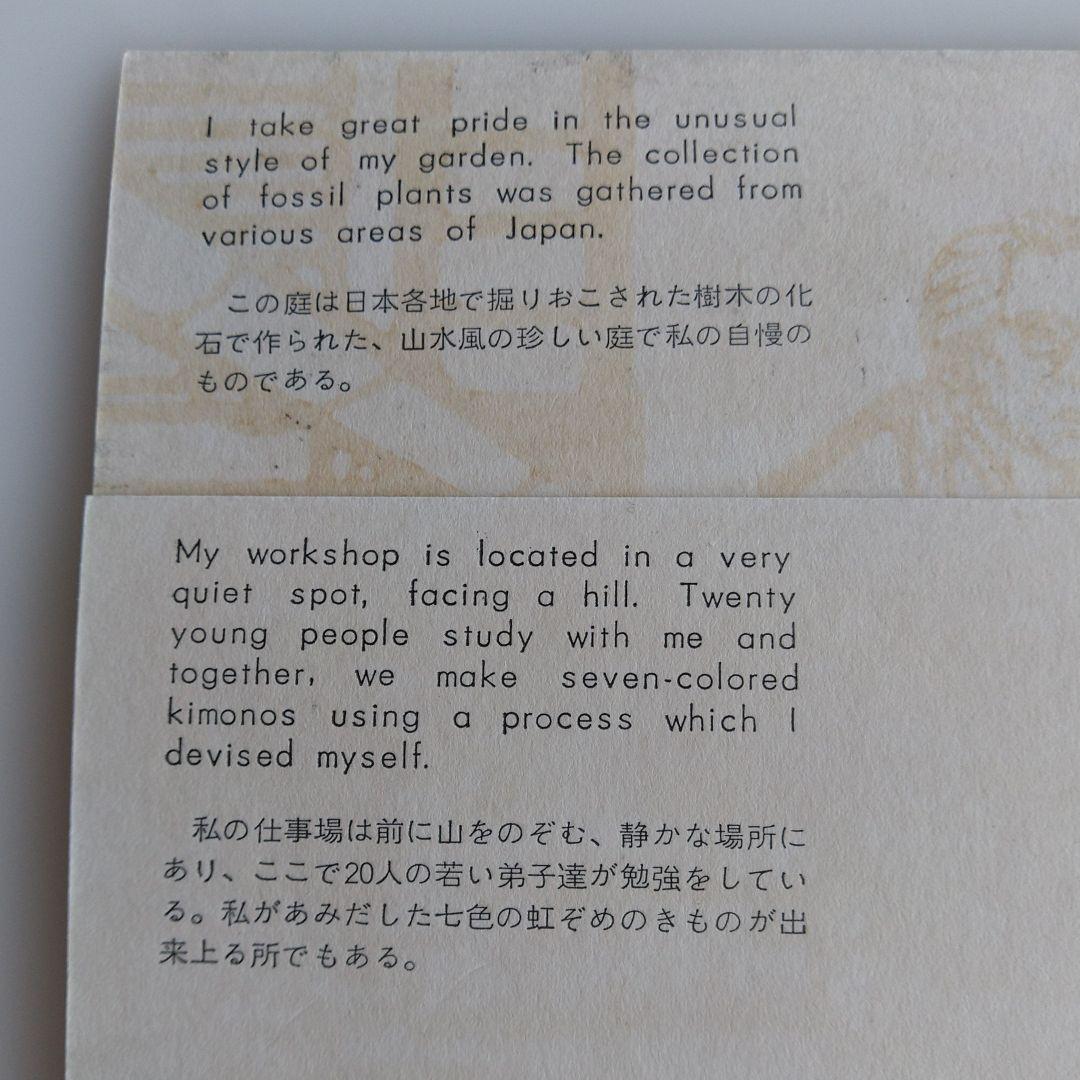 I take great pride in the unusual
style of my garden. The collection
of fossil plants was gathered from
various areas of Japan.
この庭は日本各地で掘りおこされた樹木の化
石で作られた、山水風の珍しい庭で私の自慢の
ものである。
My workshop is located in a very
quiet spot, facing a hill. Twenty
young people study with me and
together, we make seven-colored
kimonos using a process which I
devised myself.
私の仕事場は前に山をのぞむ、静かな場所に
あり、ここで20人の若い弟子達が勉強をしてい
る。私があみだした七色の虹ぞめのきものが出
来上る所でもある。